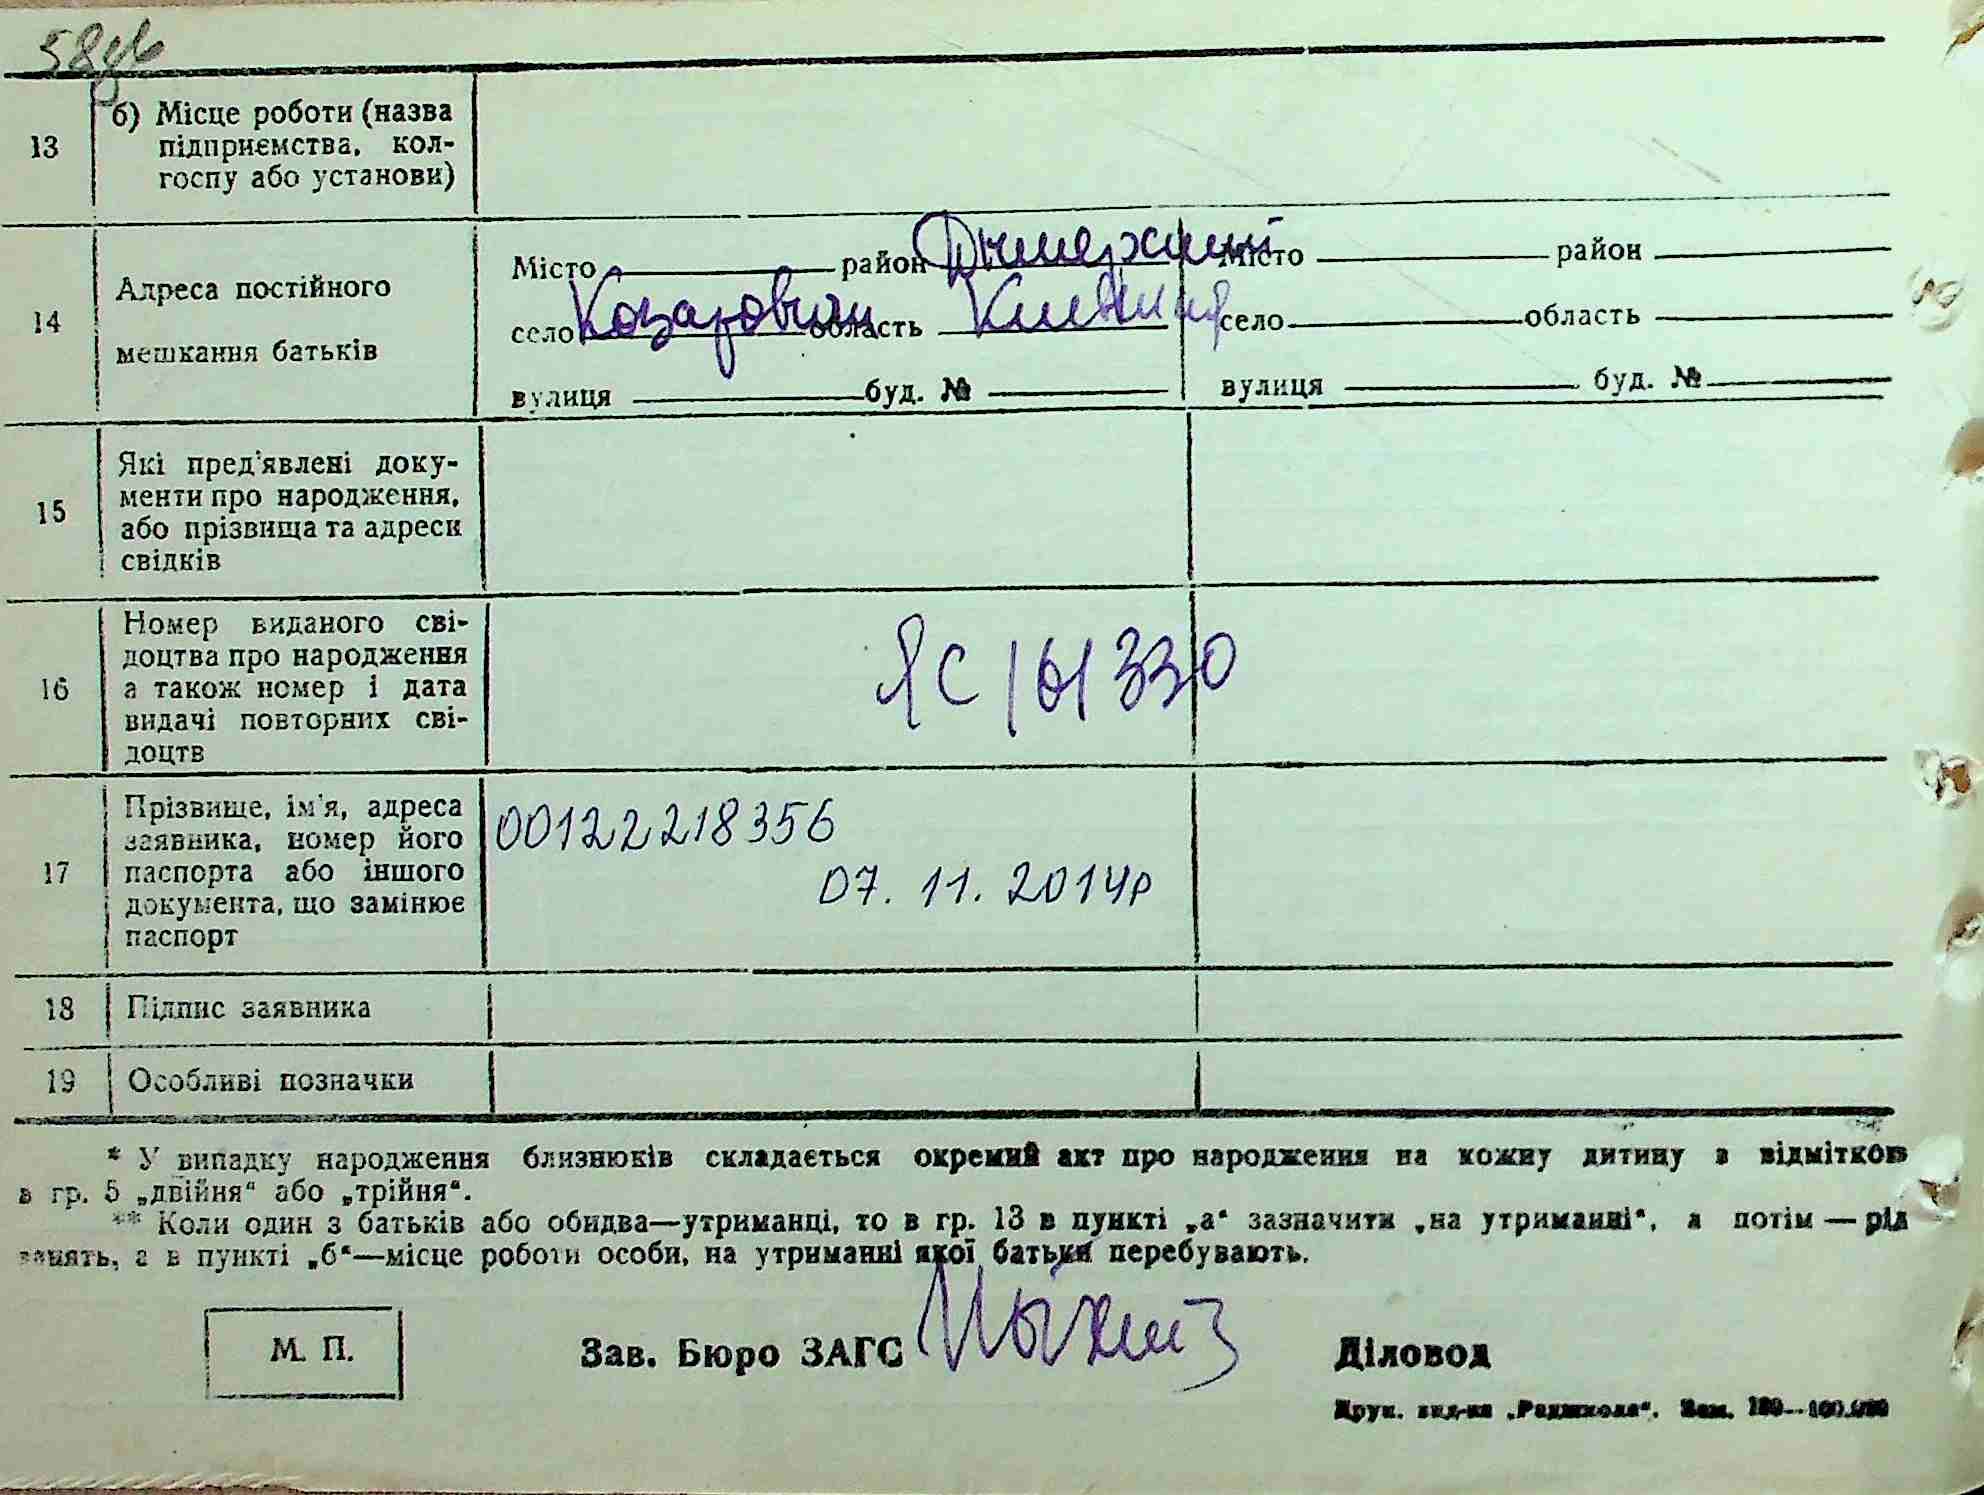 58
13
б) Місце роботи (назва
підприємства, кол-
госпу або установи)
14
Адреса постійного
мешкання батьків
Місто район Дымерский
село Козаровичи область Киевская
вулиця буд. №
Місто район
село область
вулиця буд. №
15
Які пред'явлені доку-
менти про народження,
або прізвища та адреси
свідків
16
Номер виданого сві-
доцтва про народження
а також номер і дата
видачі повторних сві-
доцтв
ЯС 161330
17
Прізвище, ім'я, адреса
заявника, номер його
паспорта або іншого
документа, що замінює
паспорт
00122218356
07. 11. 2014р
18
Підпис заявника
19
Особливі позначки
* У випадку народження близнюків складається окремий акт про народження на кожну дитину з відміткою
в гр. 5 „двійня“ або „трійня“.
** Коли один з батьків або обидва—утриманці, то в гр. 13 в пункті „а“ зазначити „на утриманні“, а потім — рід
занять, а в пункті „б“—місце роботи особи, на утриманні якої батьки перебувають.
М. П.
Зав. Бюро ЗАГС
Діловод
Друк. вид-ва „Радшкола“. Зам.